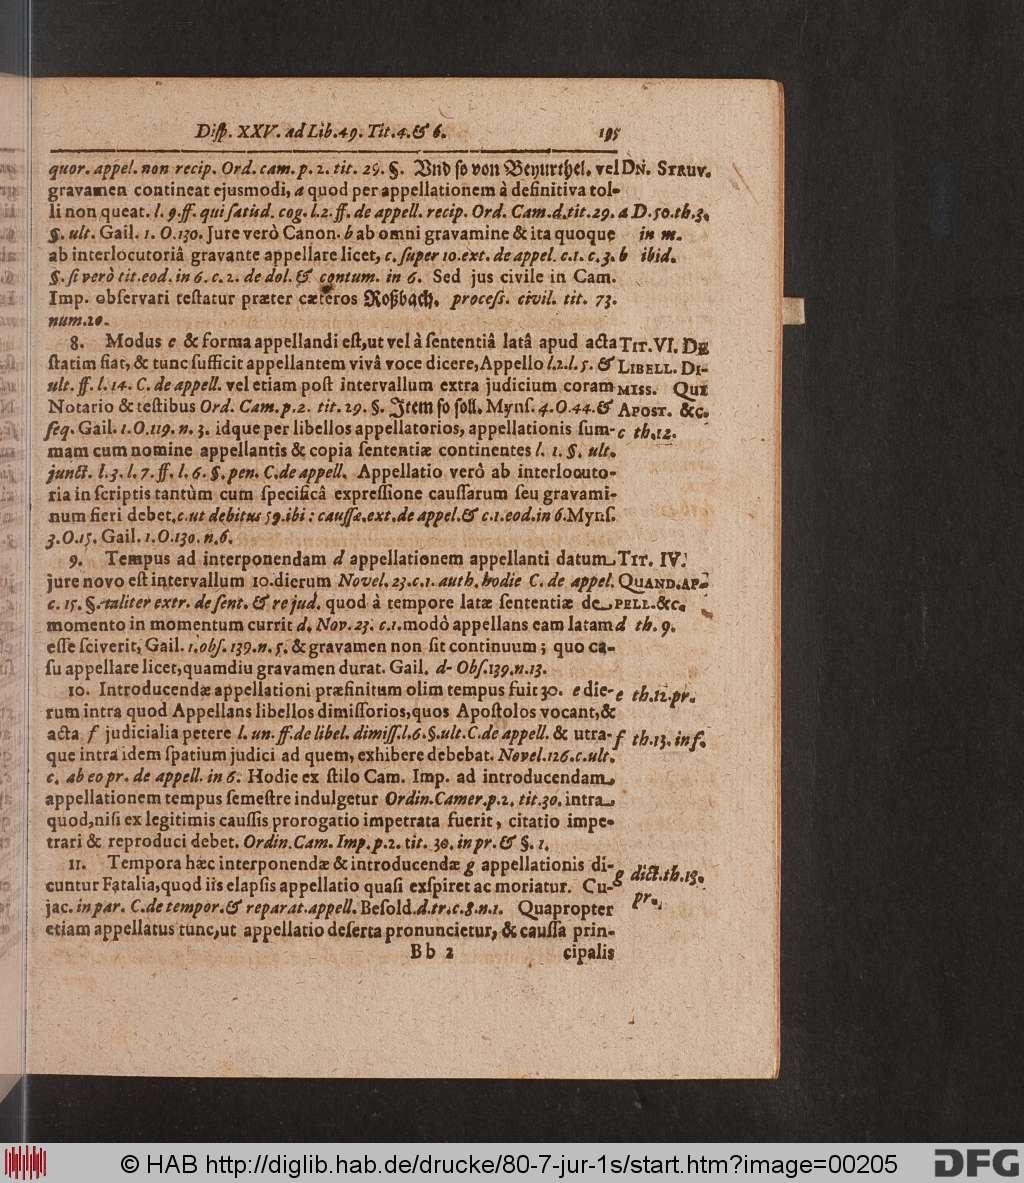 Disp. XXV. ad Lib. 49. Tit. 4. & 6. 195
quor. appel. non recip. Ord. cam. p. 2. tit. 29. §. Vnd so von Beyurthel. vel
gravamen contineat ejusmodi, a quod per appellationem à definitiva tol-
li non queat. l. 9. ff. qui satisd. cog. l. 2. ff. de appell. recip. Ord. Cam. d. tit. 29.
§. ult. Gail. 1. O. 130. Jure verò Canon. b ab omni gravamine & ita quoque
ab interlocutoriâ gravante appellare licet, c. super 10. ext. de appel. c. 1. c. 3.
§. si verò tit. eod. in 6. c. 2. de dol. & contum. in 6. Sed jus civile in Cam.
Imp. observari testatur præter cæteros Roßbach. process. civil. tit. 73.
num. 20.
8. Modus e & forma appellandi est, ut vel à sententiâ latâ apud acta
statim fiat, & tunc sufficit appellantem vivâ voce dicere, Appello l. 2. l. 5. &
ult. ff. l. 14. C. de appell. vel etiam post intervallum extra judicium coram
Notario & testibus Ord. Cam. p. 2. tit. 29. §. Item so soll. Myns. 4. O. 44. &
seq. Gail. 1. O. 119. n. 3. idque per libellos appellatorios, appellationis sum-
mam cum nomine appellantis & copia sententiæ continentes l. 1. §. ult.
junct. l. 3. l. 7. ff. l. 6. §. pen. C. de appell. Appellatio verò ab interlocuto-
ria in scriptis tantùm cum specificâ expressione caussarum seu gravami-
num fieri debet. c. ut debitus 59. ibi: caussæ. ext. de appel. & c. 1. eod. in 6. Myns.
3. O. 15. Gail. 1. O. 130. n. 6.
9. Tempus ad interponendam d appellationem appellanti datum
jure novo est intervallum 10. dierum Novel. 23. c. 1. auth. hodie C. de appel.
c. 15. §. taliter extr. de sent. & re jud. quod à tempore latæ sententiæ de
momento in momentum currit d. Nov. 23. c. 1. modò appellans eam latam
esse sciverit, Gail. 1. obs. 139. n. 5. & gravamen non sit continuum; quo ca-
su appellare licet, quamdiu gravamen durat. Gail. d. Obs. 139. n. 13.
10. Introducendæ appellationi præfinitum olim tempus fuit 30. e die-
rum intra quod Appellans libellos dimissorios, quos Apostolos vocant, &
acta f judicialia petere l. un. ff. de libel. dimiss. l. 6. §. ult. C. de appell. & utra-
que intra idem spatium judici ad quem, exhibere debebat. Novel. 126. c. ult.
c. ab eo pr. de appell. in 6. Hodie ex stilo Cam. Imp. ad introducendam
appellationem tempus semestre indulgetur Ordin. Camer. p. 2. tit. 30. intra
quod, nisi ex legitimis caussis prorogatio impetrata fuerit, citatio impe-
trari & reproduci debet. Ordin. Cam. Imp. p. 2. tit. 30. in pr. & §. 1.
11. Tempora hæc interponendæ & introducendæ g appellationis di-
cuntur Fatalia, quod iis elapsis appellatio quasi exspiret ac moriatur. Cu-
jac. in par. C. de tempor. & reparat. appell. Besold. d. tr. c. 8. n. 1. Quapropter
etiam appellatus tunc, ut appellatio deserta pronuncietur, & caussa prin-
Bb 2 cipalis
DN. STRUV.
a D. 50. th. 3.
in m.
b ibid.
TIT. VI. DE
LIBELL. DI-
MISS. QUI
APOST. &c.
c th. 12.
TIT. IV.
QUAND. AP-
PELL. &c.
d th. 9.
e th. 12. pr.
f th. 13. inf.
g dict. th. 13.
pr.
© HAB http://diglib.hab.de/drucke/80-7-jur-1s/start.htm?image=00205
DFG